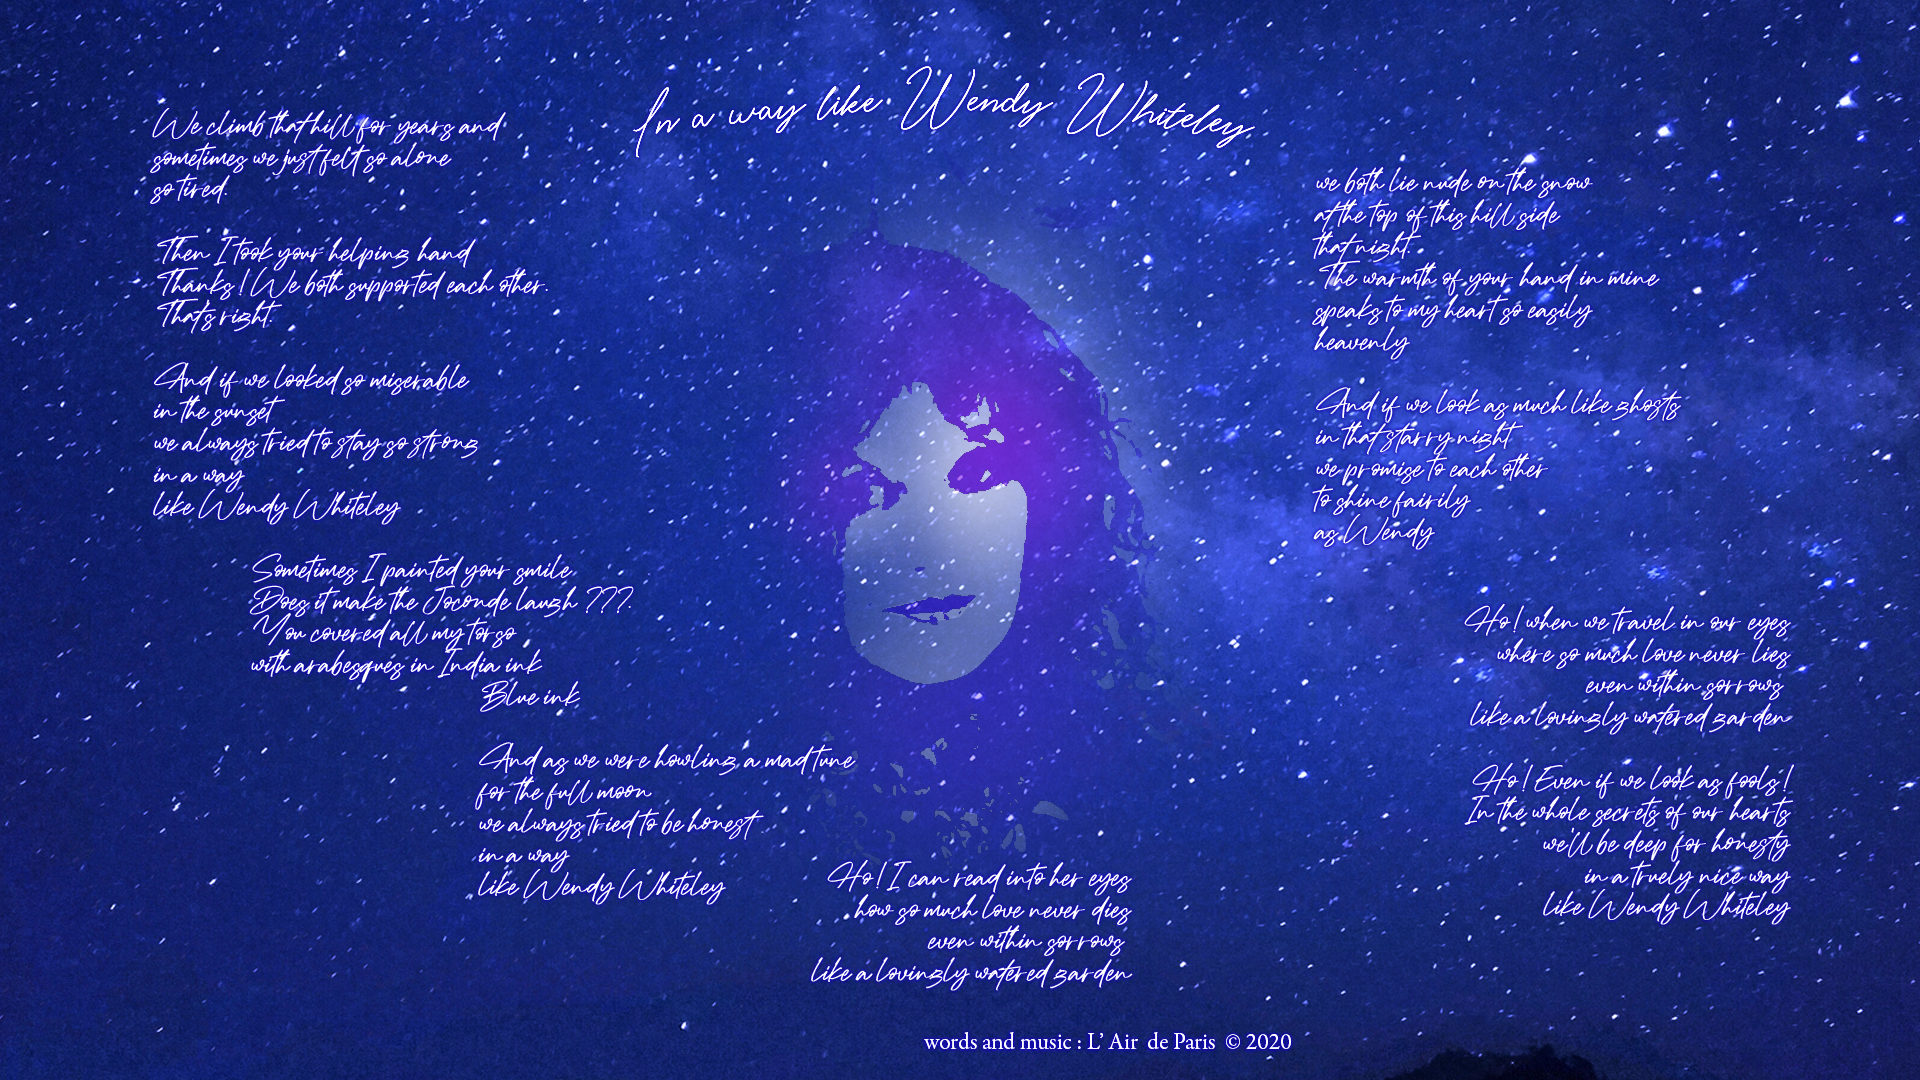 In a way like Wendy Whiteley
We climb that hill for years and
sometimes we just felt so alone
so tired.
Then I took your helping hand
Thanks ! We both supported each other.
That's right.
And if we looked so miserable
in the sunset
we always tried to stay so strong
in a way
like Wendy Whiteley
Sometimes I painted your smile
Does it make the Joconde laugh ???.
You covered all my torso
with arabesques in India ink
Blue ink
And as we were howling a mad tune
for the full moon
we always tried to be honest
in a way
like Wendy Whiteley
Ho ! I can read into her eyes
how so much love never dies
even within sorrows
like a lovingly watered garden
we both lie nude on the snow
at the top of this hill side
that night.
The warmth of your hand in mine
speaks to my heart so easily
heavenly
And if we look as much like ghosts
in that starry night
we promise to each other
to shine fairily
as Wendy
Ho ! when we travel in our eyes
where so much love never lies
even within sorrows
like a lovingly watered garden
Ho ! Even if we look as fools !
In the whole secrets of our hearts
we'll be deep for honesty
in a truely nice way
like Wendy Whiteley
words and music : L' Air de Paris © 2020